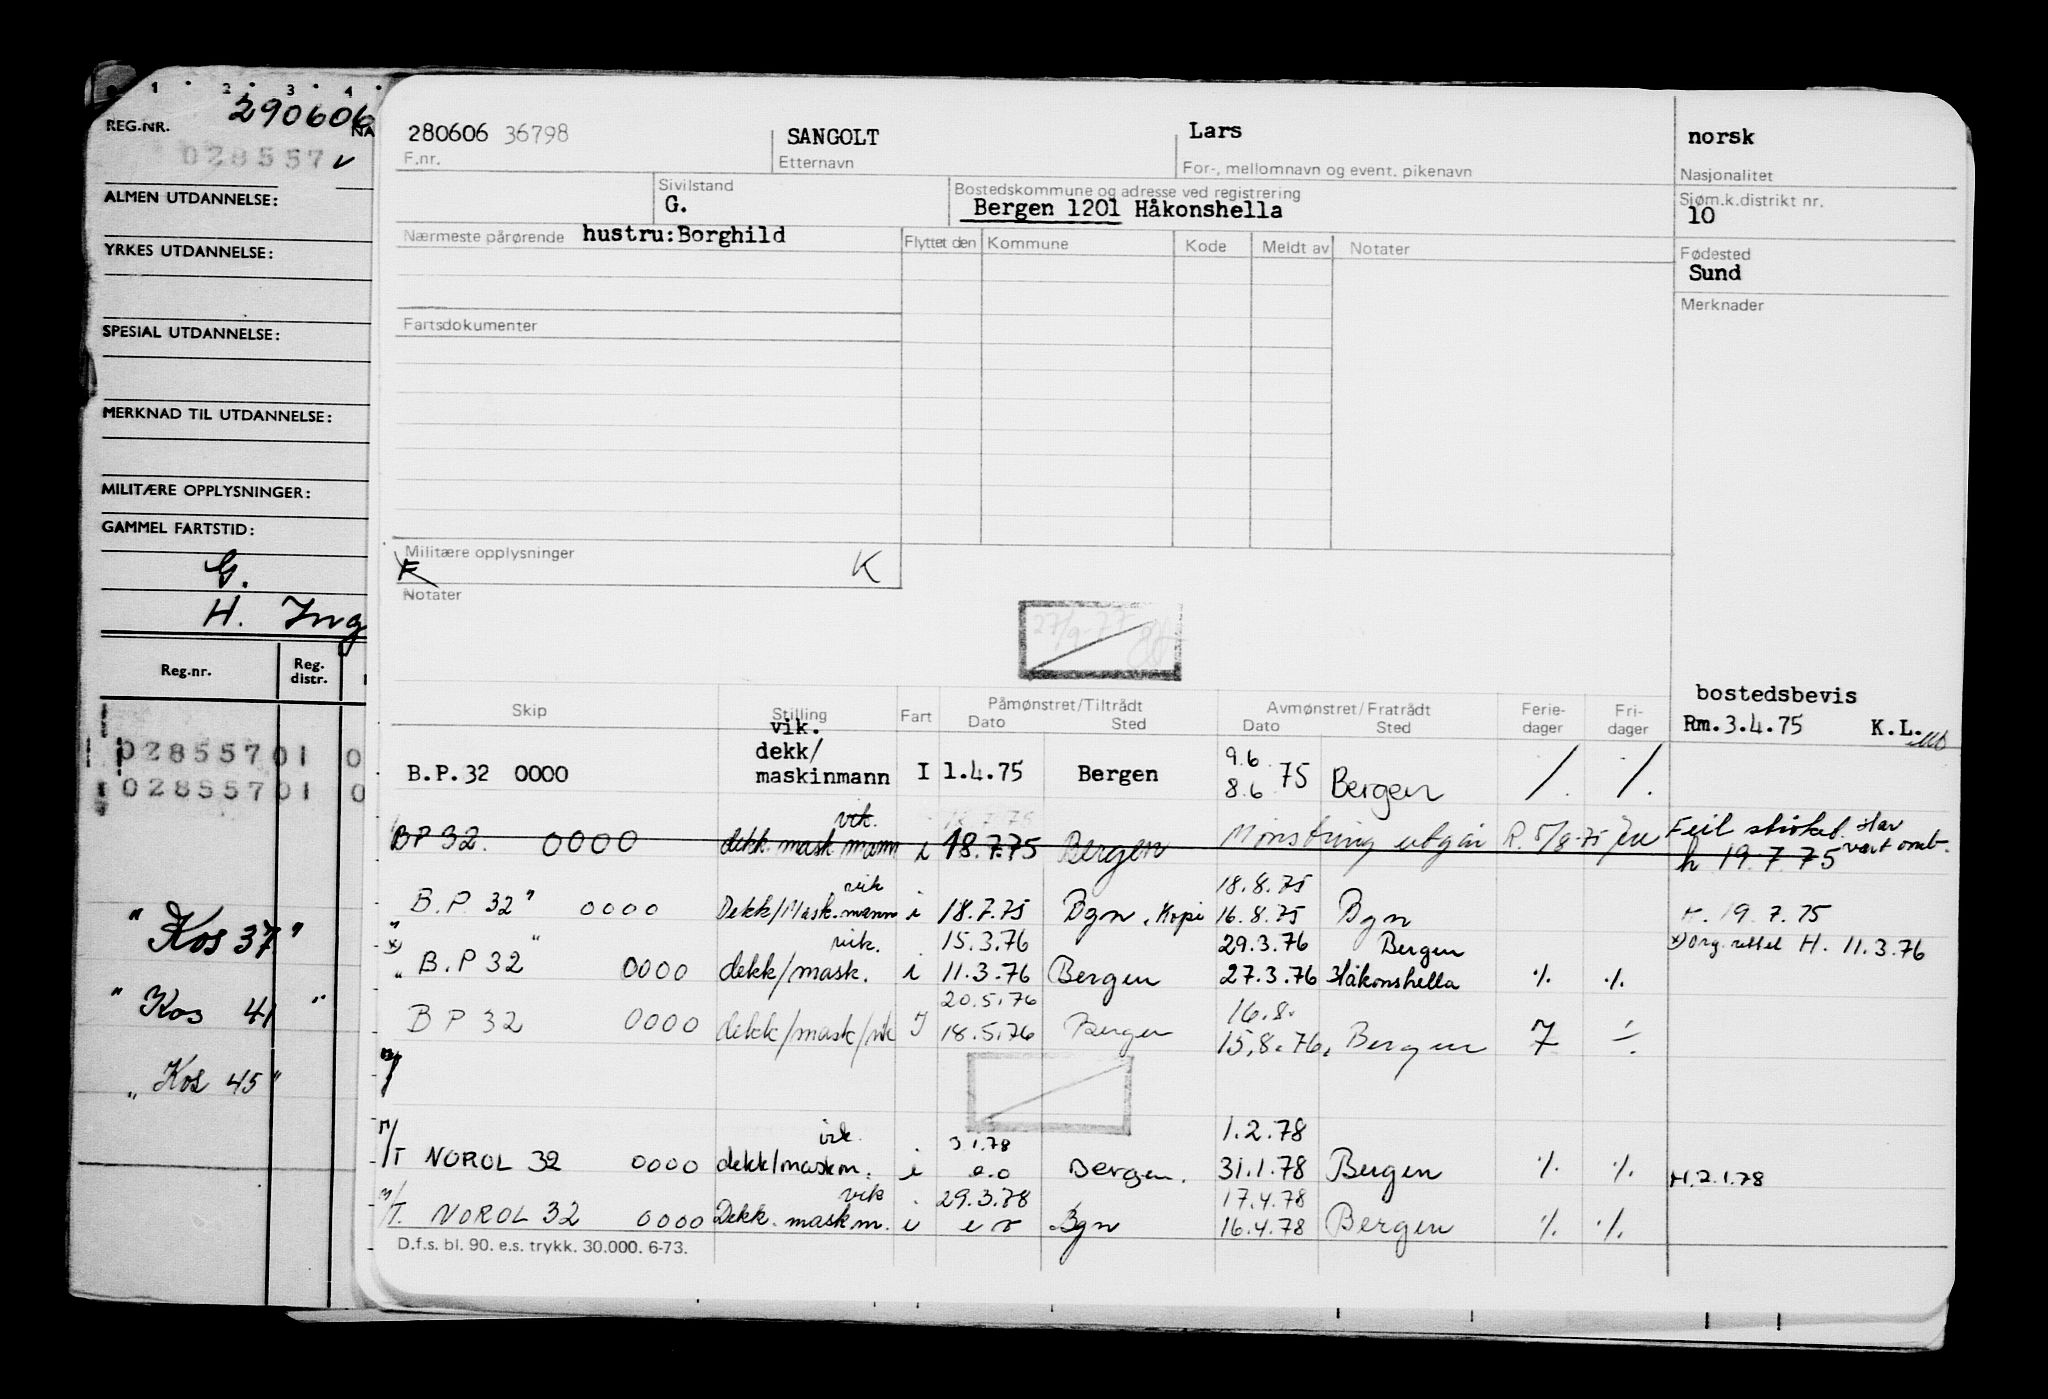 1 · 2 · 3 · 4 ·
REG.NR. 290606 NA
028557 v
ALMEN UTDANNELSE:
YRKES UTDANNELSE:
SPESIAL UTDANNELSE:
MERKNAD TIL UTDANNELSE:
MILITÆRE OPPLYSNINGER:
GAMMEL FARTSTID:
G.
H. Ing
Reg.nr. Reg. distr.
02855701 0
02855701 0
" Kos 37 "
" Kos 41 "
" Kos 45 "
280606 36798 SANGOLT Lars norsk
F.nr. Etternavn For-, mellomnavn og event. pikenavn Nasjonalitet
Sivilstand Bostedskommune og adresse ved registrering Sjøm.k.distrikt nr.
G. Bergen 1201 Håkonshella 10
Nærmeste pårørende hustru:Borghild Flyttet den Kommune Kode Meldt av Notater Fødested
Sund
Merknader
Fartsdokumenter
Militære opplysninger K
F
Notater
27/9-77
bostedsbevis
Skip Stilling Fart Påmønstret/Tiltrådt Avmønstret/Fratrådt Ferie- Fri-
Dato Sted Dato Sted dager dager Rm.3.4.75 K.L.
vik.
dekk/ 9.6
B.P.32 0000 maskinmann I 1.4.75 Bergen 8.6.75 Bergen /. /.
vik.
BP 32. 0000 dekk. mask mann i 18.7.75 Bergen Mønstring utgår R. 5/8-75 Feil skirkef. Har
h 19.7.75 vært omb.
vik 18.8.75
B.P. 32" 0000 Dekk/Mask.mann i 18.7.75 Bgn, Kopi 16.8.75 Bgn 19.7.75
vik. 15.3.76 29.3.76 Bergen x) org. rullel H. 11.3.76
x) " B.P 32" 0000 dekk/mask. i 11.3.76 Bergen 27.3.76 Håkonshella ·/. ·/.
20.5.76 16.8.
B P 32 0000 dekk/mask/vik I 18.5.76 Bergen 15.8.76. Bergen 7 ·/.
vik. 3 1.78 1.2.78
M/T NOROL 32 0000 dekk/maskm. i e.o Bergen. 31.1.78 Bergen ·/. ·/. H.2.1.78
vik 29.3.78 17.4.78
M/T. NOROL 32 0000 Dekk. mask m. i e o Bgn 16.4.78 Bergen ·/. ·/.
D.f.s. bl. 90. e.s. trykk. 30.000. 6-73.